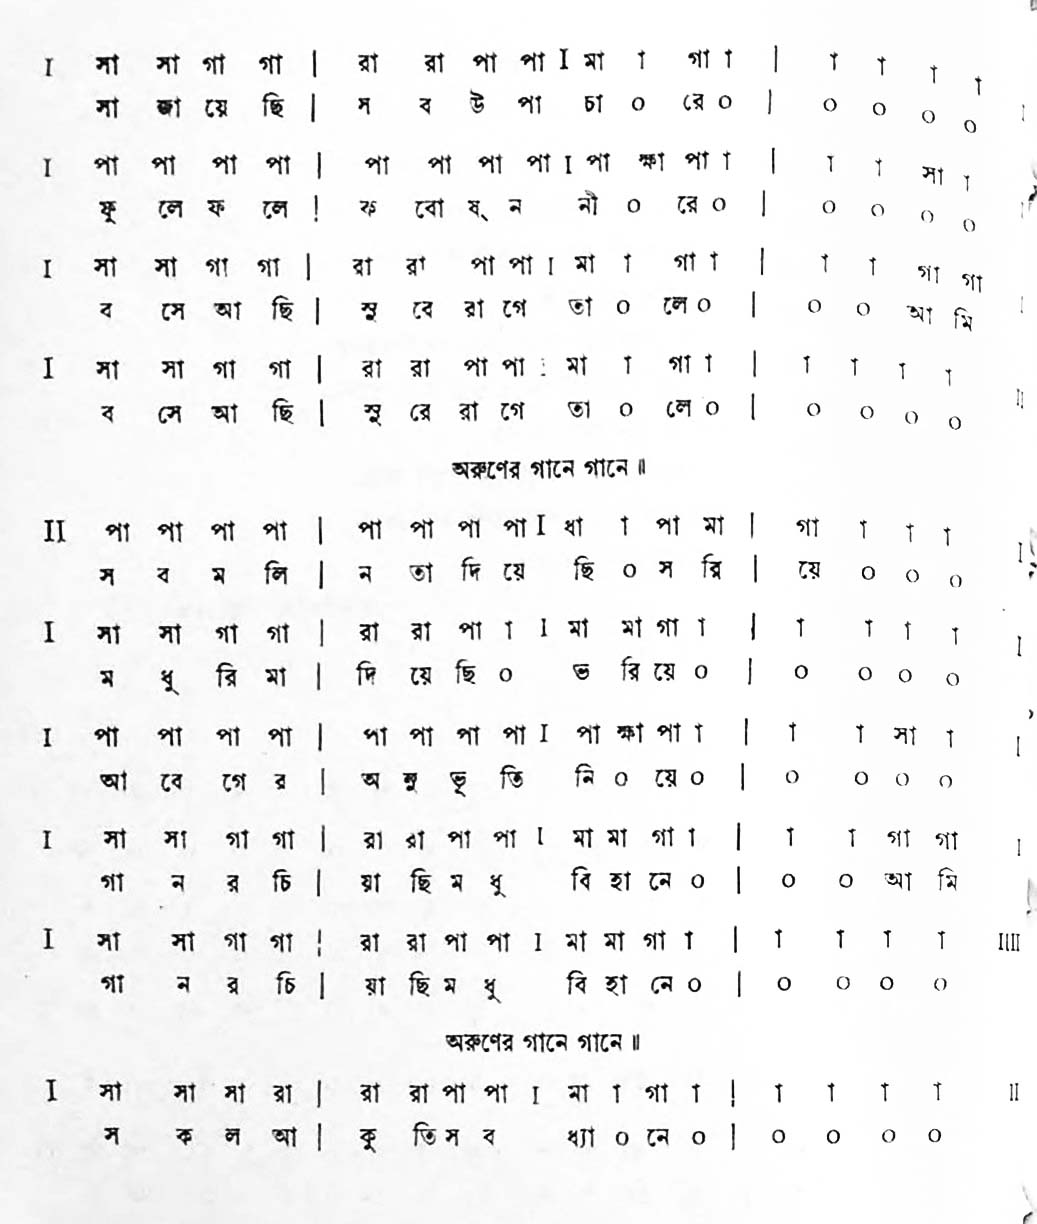 I সা সা গা গা | রা রা পা পা I মা া গা া | া া া া
সা জা য়ে ছি | স ব উ পা চা ০ রে ০ | ০ ০ ০ ০ I
I পা পা পা পা | পা পা পা পা I পা ক্ষা পা া | া া সা া
ফু লে ফ লে ! ক বো ষ্ ন নী ০ রে ০ | ০ ০ ০ ০ I
I সা সা গা গা | রা রা পা পা I মা া গা া | া া গা গা
ব সে আ ছি | সু রে রা গে তা ০ লে ০ | ০ ০ আ মি I
I সা সা গা গা | রা রা পা পা : মা া গা া | া া া া
ব সে আ ছি | সু রে রা গে তা ০ লে ০ | ০ ০ ০ ০ II
অরুণের গানে গানে ॥
II পা পা পা পা | পা পা পা পা I ধা া পা মা | গা া া া
স ব ম লি | ন তা দি য়ে ছি ০ স রি | য়ে ০ ০ ০ I
I সা সা গা গা | রা রা পা া I মা মা গা া | া া া া I
ম ধু রি মা | দি য়ে ছি ০ ভ রি য়ে ০ | ০ ০ ০ ০
I পা পা পা পা | পা পা পা পা I পা ক্ষা পা া | া া সা া I
আ বে গে র | অ নু ভূ তি নি ০ য়ে ০ | ০ ০ ০ ০
I সা সা গা গা | রা রা পা পা I মা মা গা া | া া গা গা I
গা ন র চি | য়া ছি ম ধু বি হা নে ০ | ০ ০ আ মি
I সা সা গা গা ¦ রা রা পা পা I মা মা গা া | া া া া IIII
গা ন র চি | য়া ছি ম ধু বি হা নে ০ | ০ ০ ০ ০
অরুণের গানে গানে ॥
I সা সা সা রা | রা রা পা পা I মা া গা া ¦ া া া া II
স ক ল আ | কু তি স ব ধ্যা ০ নে ০ | ০ ০ ০ ০